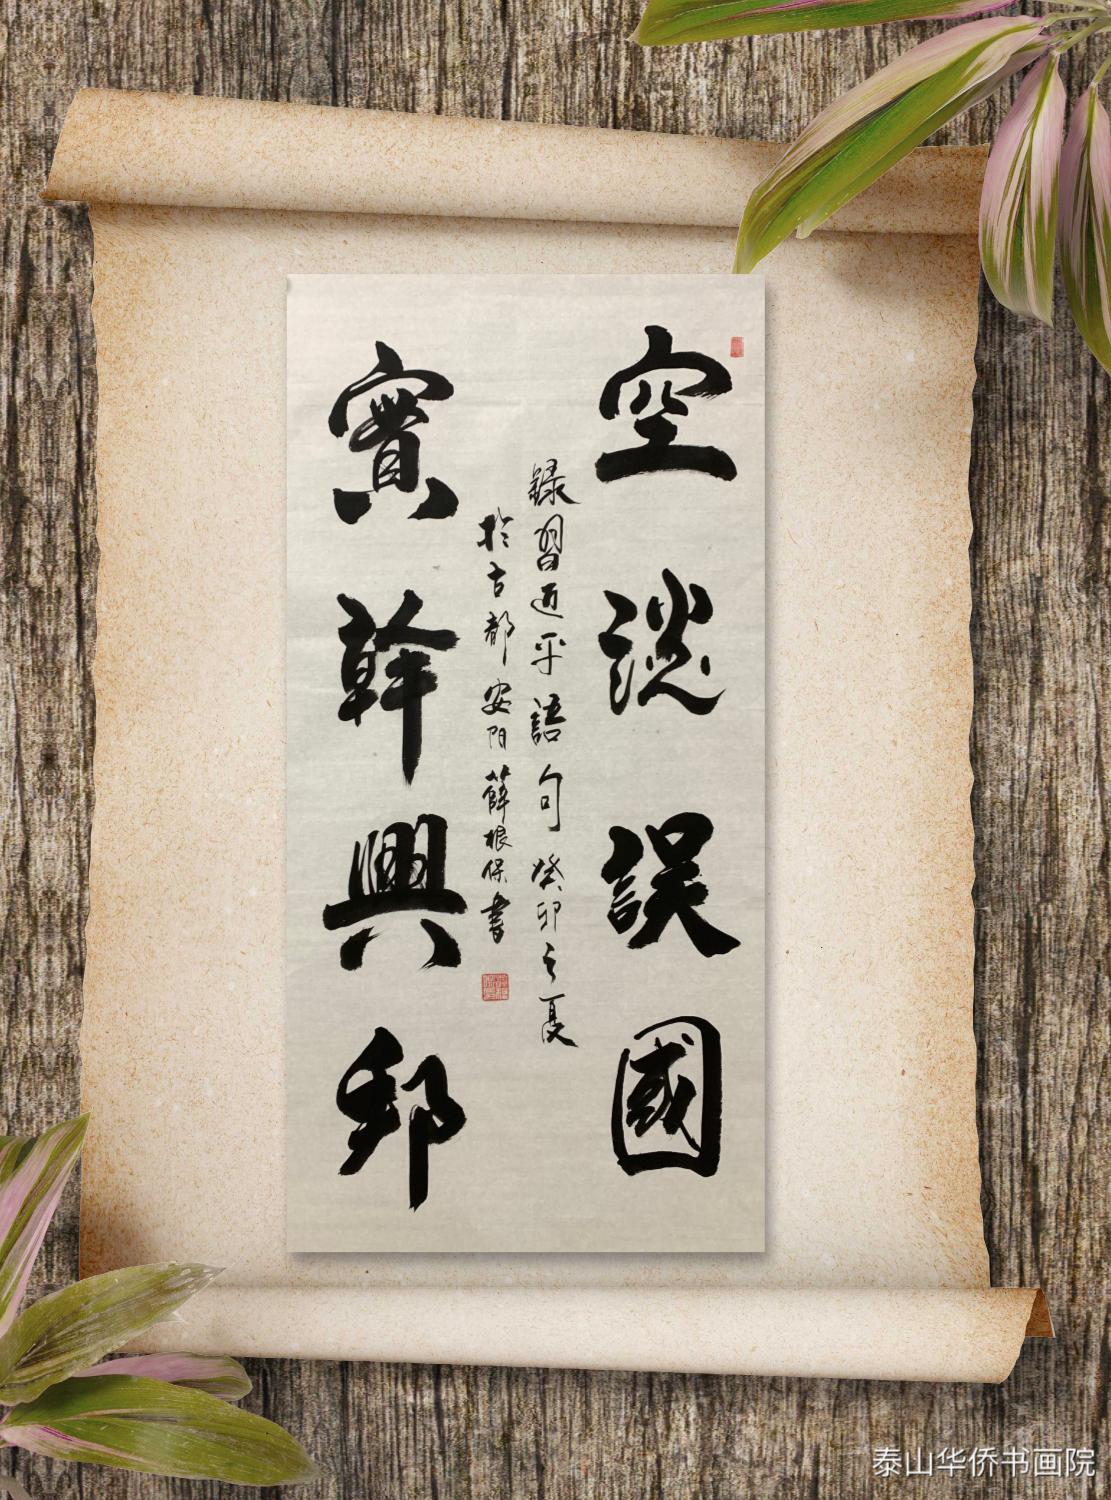 空談誤國
錄習近平語句癸卯之夏
於古都安陽薛根保書
實幹興邦
泰山华侨书画院